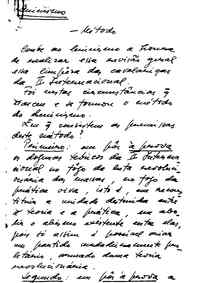 Leninismo
— Método
Coube ao leninismo a honra
de realizar essa revisão geral
essa limpeza das cavalariças
da II Internacional.
Foi nestas circunstâncias q
nasceu e se formou o método
do leninismo.
Em q consistem as premissas
deste método?
Primeiro: em pôr à prova
os dogmas teóricos da II Interna-
cional no fogo da luta revolucio-
nária das massas no fogo da
prática viva, isto é, em recons-
tituir a unidade destruída entre
a teoria e a prática, em abo-
lir o abismo existente entre elas,
pois só assim é possível criar
um partido verdadeiramente pro-
letário, armado duma teoria
revolucionária.
Segundo: em pôr à prova a